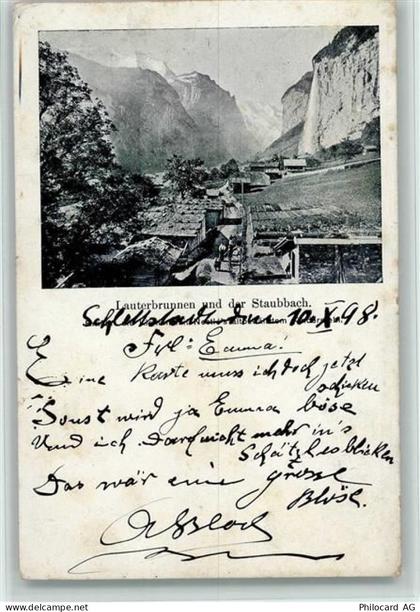 Lauterbrunnen und der Staubbach.
Schlettstadt den 10. X. 98.
Frl: Emma!
Eine Karte muss ich doch jetzt
schicken
Sonst wird ja Emma böse
Und ich darf nicht mehr in's
Schätzles blicken
Das wär eine grosse
Blöse.
Philocard AG .com